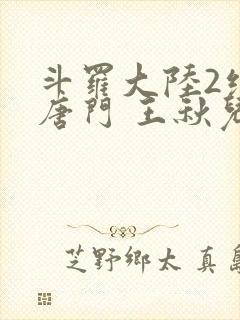 斗羅大陸2
唐門 王秋兒
芝野鄉太 真島